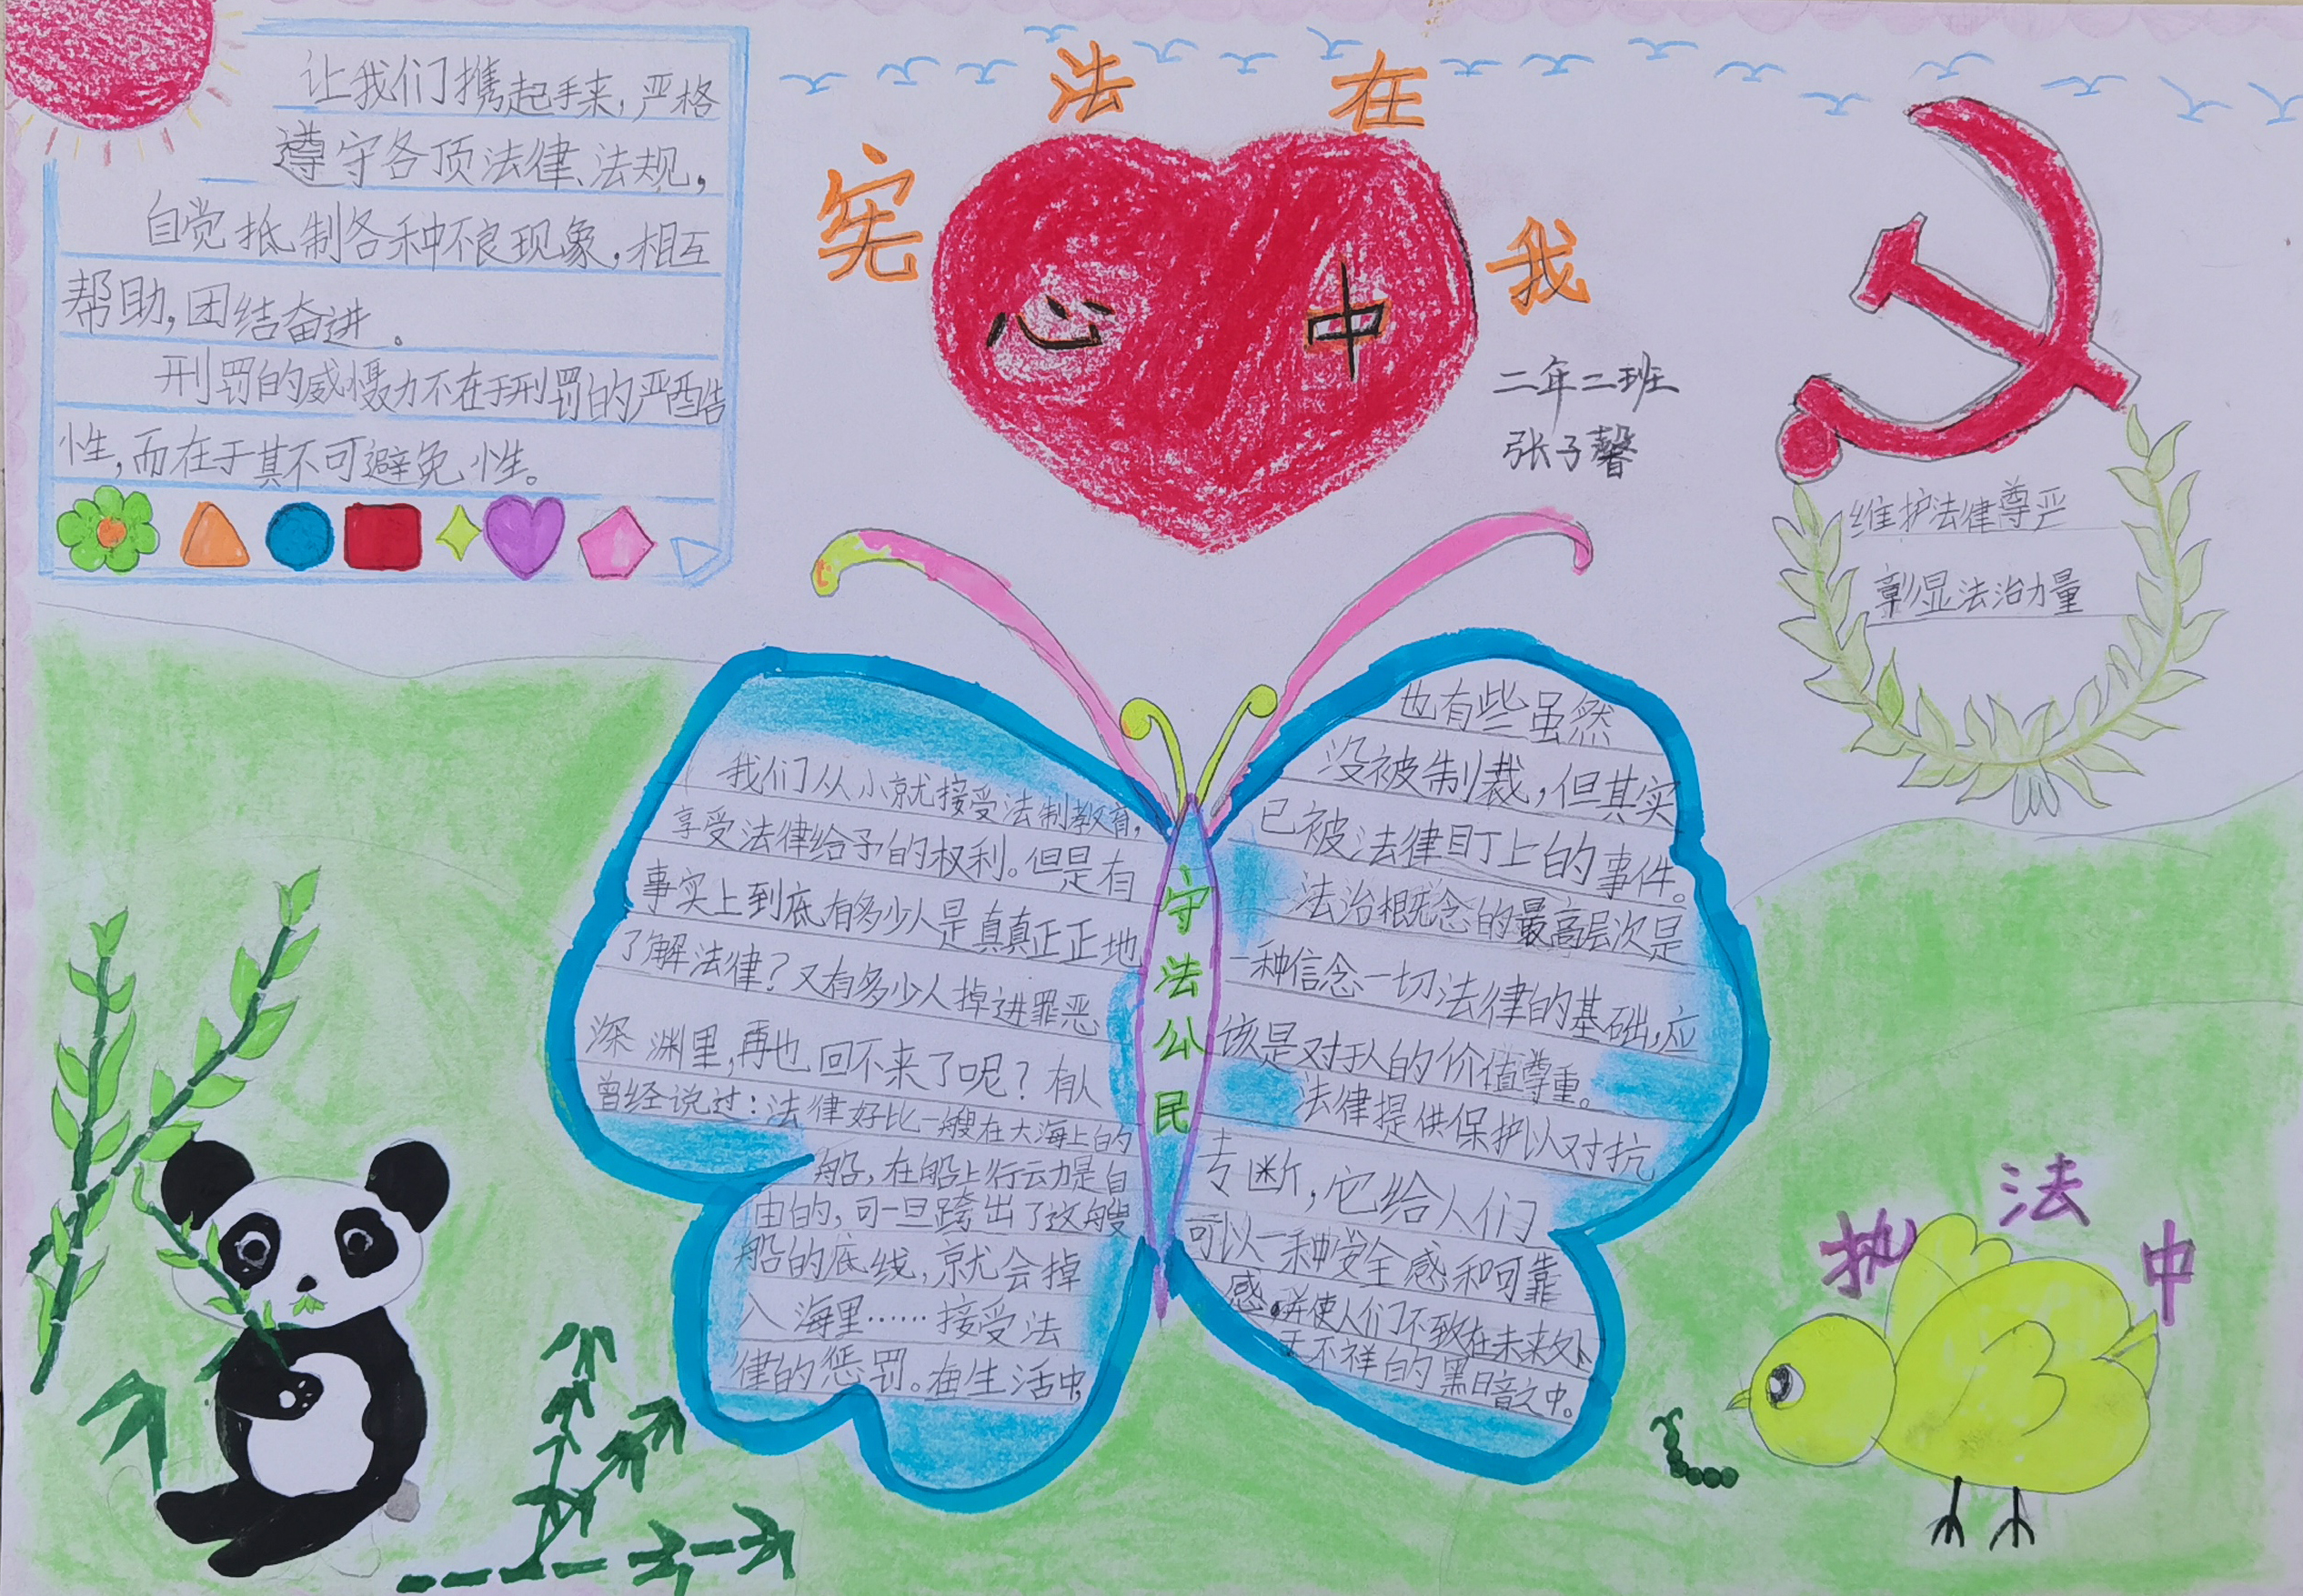 让我们携起手来，严格
遵守各项法律、法规，
自觉抵制各种不良现象，相互
帮助，团结奋进。
刑罚的威慑力不在于刑罚的严酷
性，而在于其不可避免性。
宪法在我
心中
二年二班
张子馨
维护法律尊严
彰显法治力量
我们从小就接受法制教育，
享受法律给予的权利。但是有
事实上到底有多少人是真真正正地
了解法律？又有多少人掉进罪恶
深渊里，再也回不来了呢？有人
曾经说过：法律好比一艘在大海上的
船，在船上行云力是自
由的，可一旦跨出了这艘
船的底线，就会掉
入海里……接受法
律的惩罚。在生活中，
守法公民
也有些虽然
没被制裁，但其实
已被法律盯上的事件。
法治概念的最高层次是
一种信念一切法律的基础，应
该是对于人的价值尊重。
法律提供保护以对抗
专断，它给人们
可以一种安全感和可靠
感。并使人们不致在未来处
于不祥的黑暗之中。
执法中